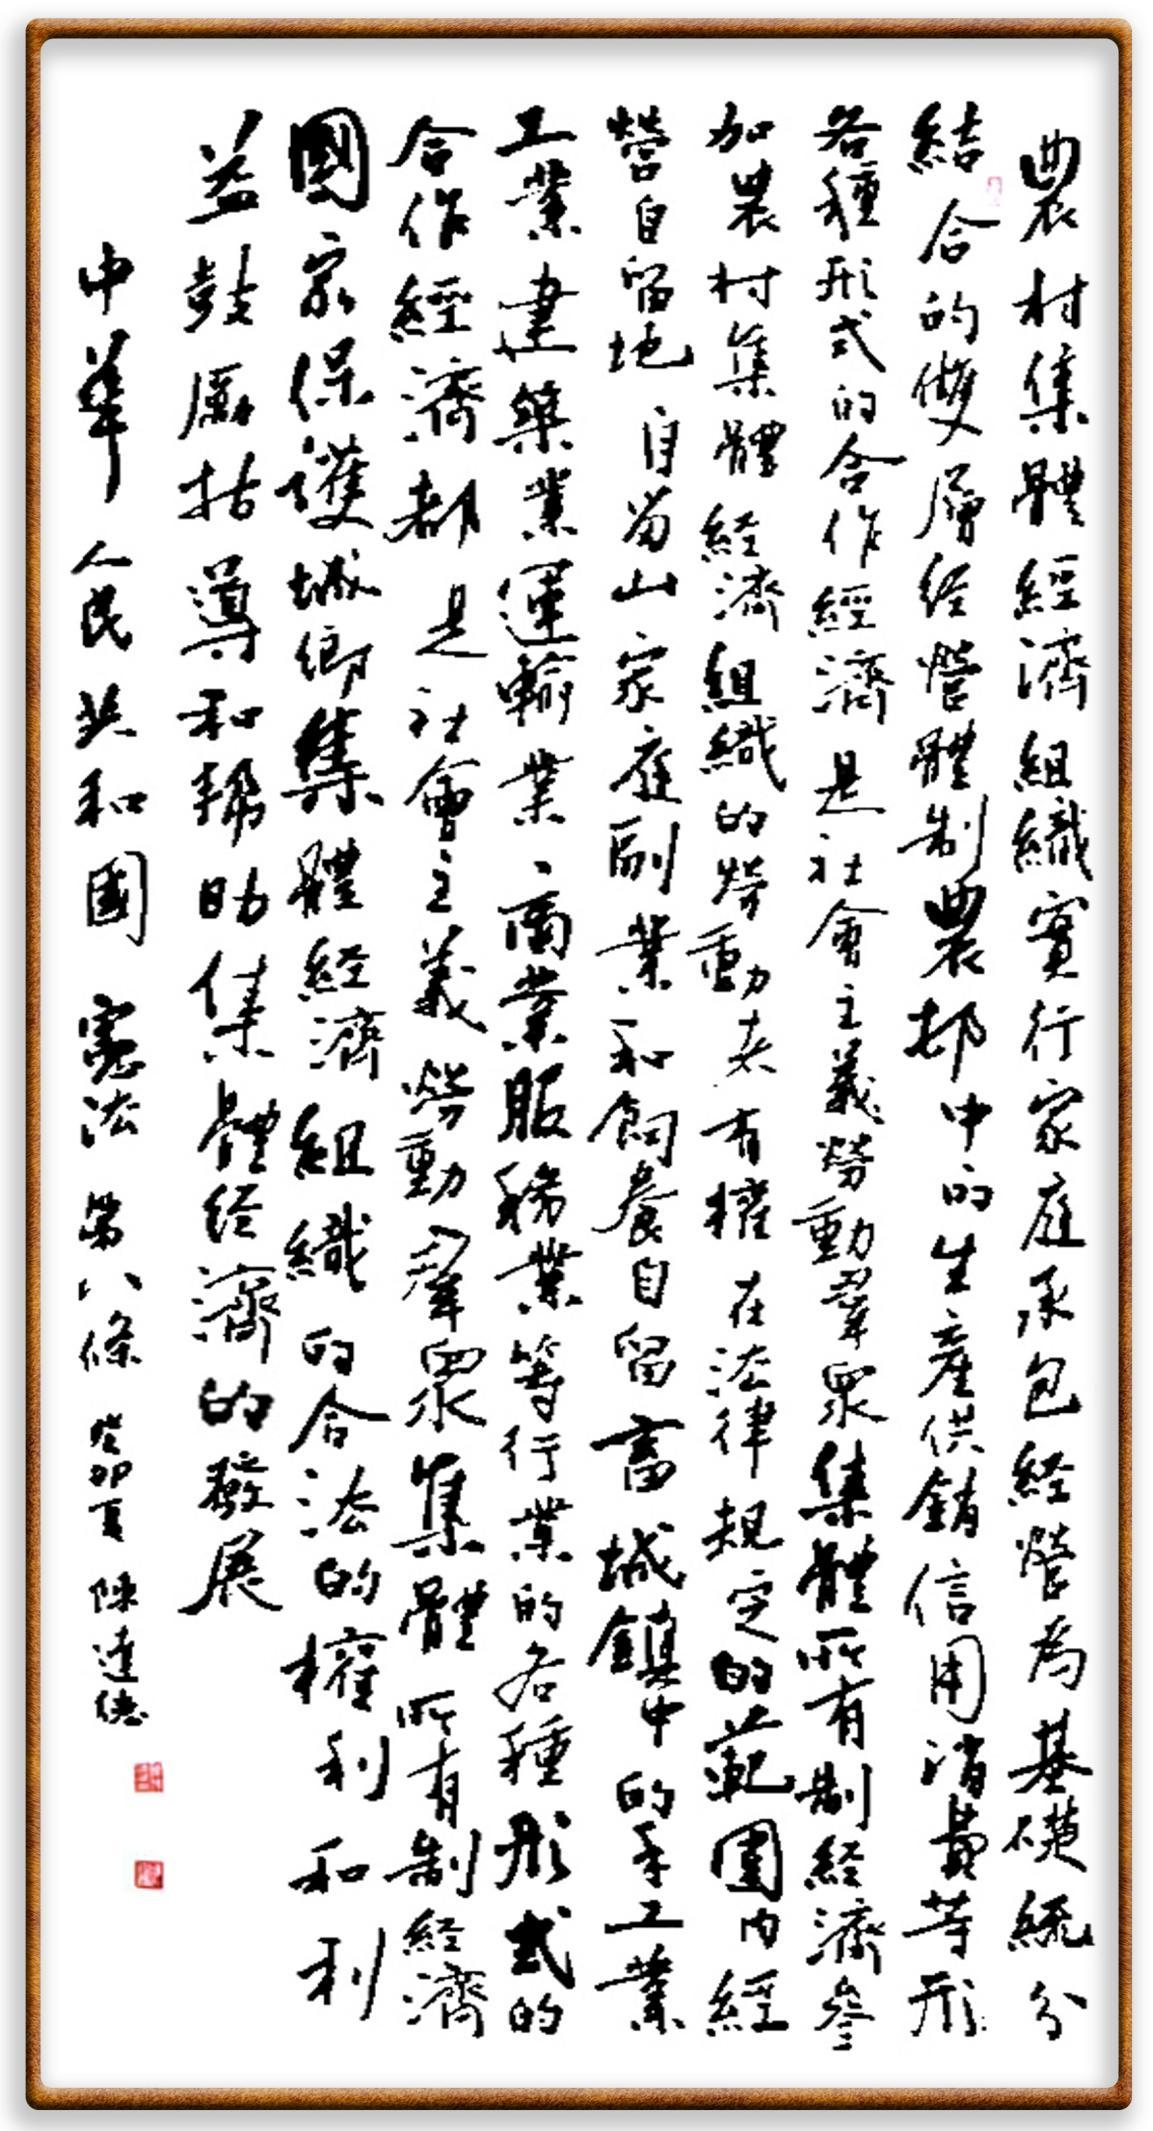 農村集體經濟組織實行家庭承包經營為基礎統分
結合的雙層经營體制農邨中的生産供銷信用消費等形
各種形式的合作經濟是社會主義勞動羣眾集體所有制経濟參
加農村集體経濟組織的勞動者有權在法律規定的範圍内經
營自留地自留山家庭副業和飼養自留畜城鎮中的手工業
工業建築業運輸業商業服務業等行業的各種形式的
合作經濟都是社會主義勞動羣眾集體所有制経濟
國家保護城鄉集體経濟組織的合法的權利和利
益鼓勵指導和幫助集體经濟的發展
中華人民共和國憲法第八條癸卯夏陳達德